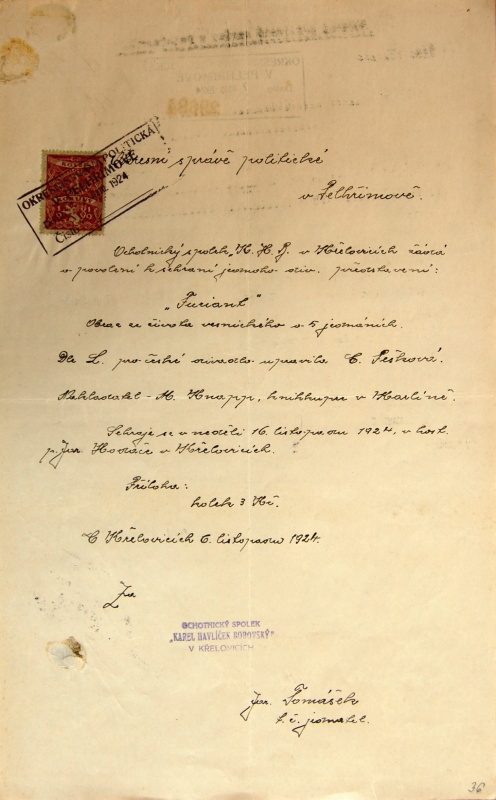 OKRESNÍ SPRÁVA POLITICKÁ
V PELHŘIMOVĚ
1924
Číslo
Okresní správě politické
v Pelhřimově.
Ochotnický spolek „K. H. B. v Křelovicích žádá
o povolení k sehrání jednoho div. představení:
„Furiant"
Obraz ze života vesnického o 5 jednáních.
Dle L. pro české divadlo upravila E. Pešková.
Nakladatel - M. Knapp, knihkupec v Karlíně.
Sehraje se v neděli 16. listopadu 1924, v host.
p. Jar. Hodače v Křelovicích.
Příloha:
kolek 3 Kč.
V Křelovicích 6. listopadu 1924.
Za
OCHOTNICKÝ SPOLEK
„KAREL HAVLÍČEK BOROVSKÝ"
V KŘELOVICÍCH
Jar. Tomášek
t. č. jednatel.
36